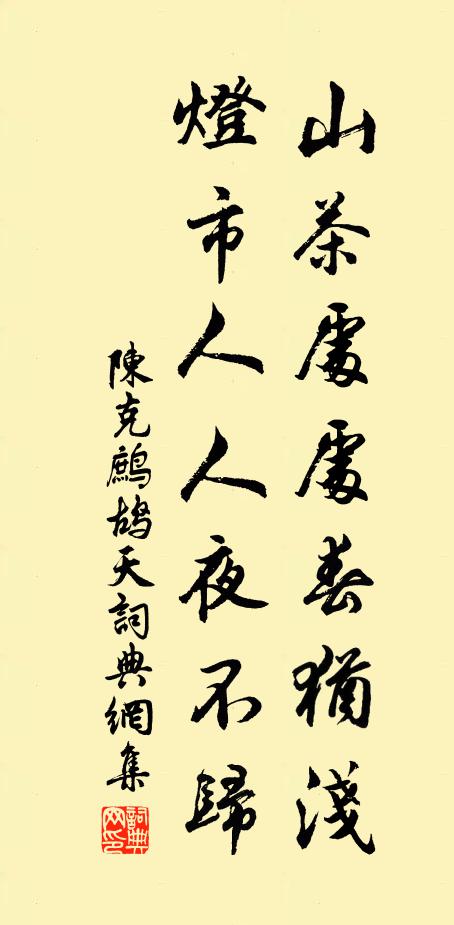 山茶處處春猶淺
燈市人人夜不歸
陳克鷓鴣天詞典網集
詞典网印